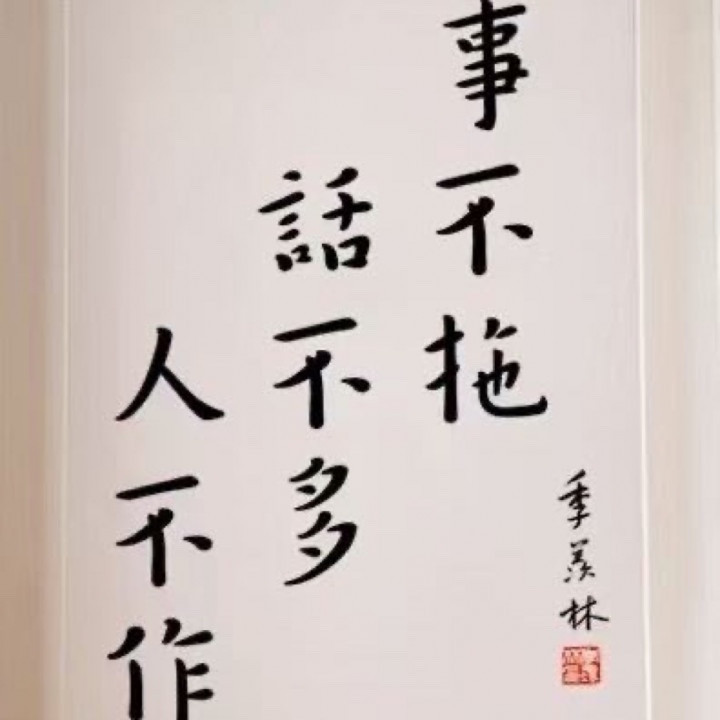 事不拖
話不多
人不作
季羡林